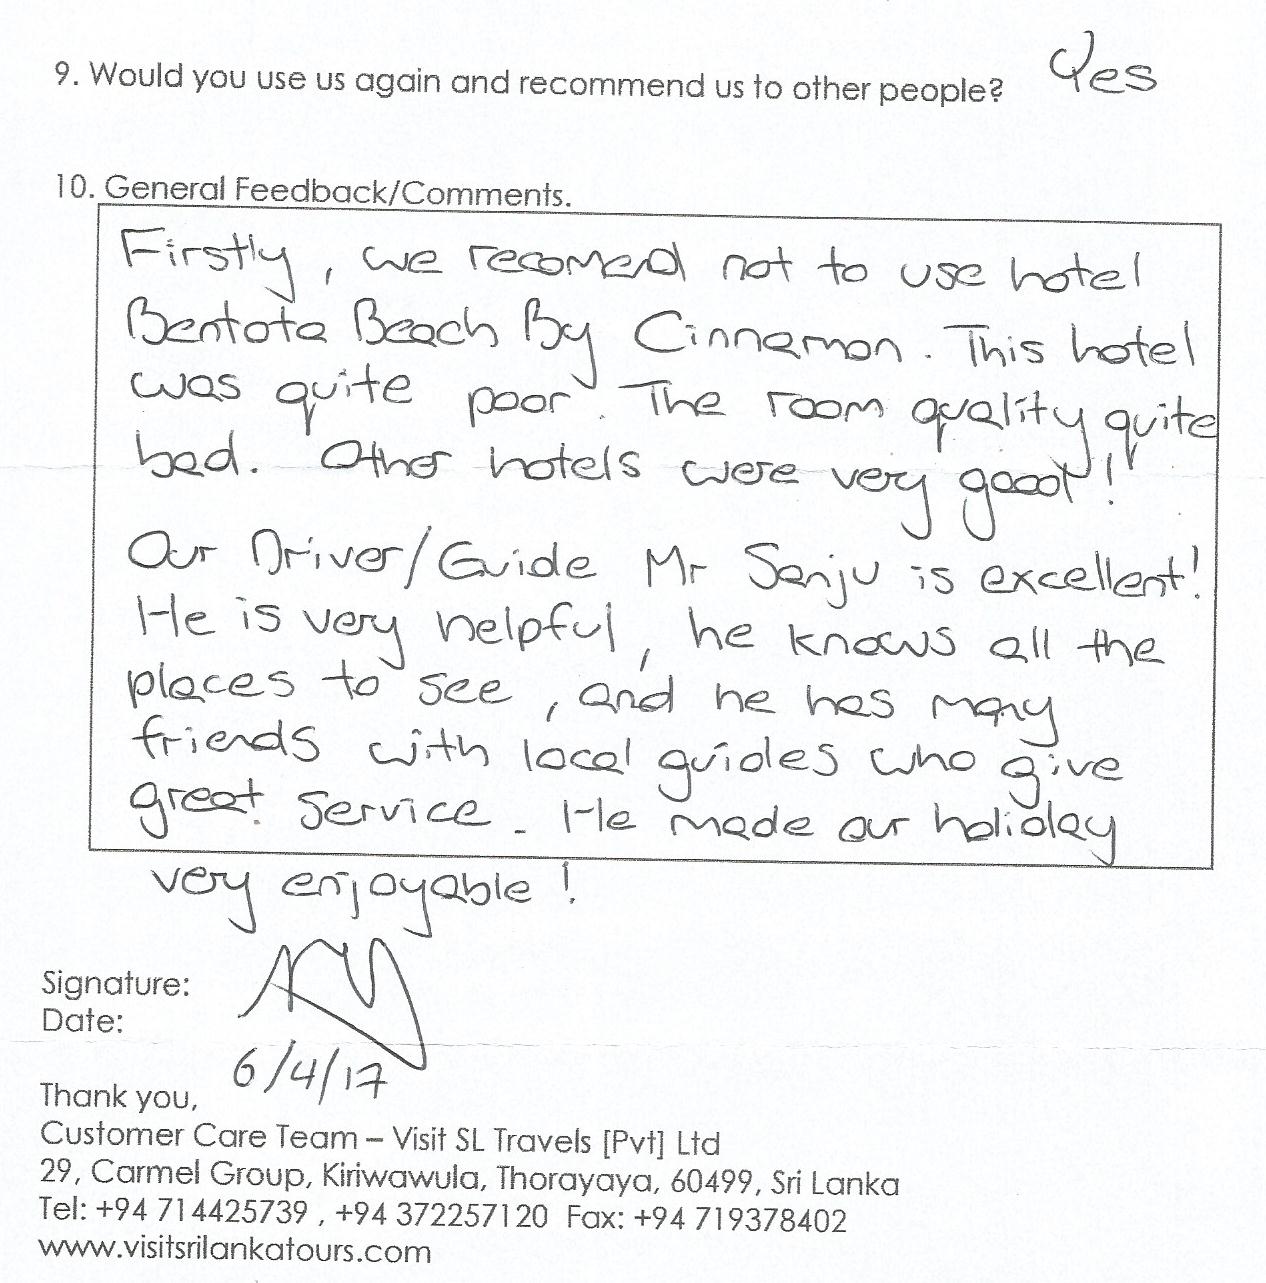 9. Would you use us again and recommend us to other people? Yes
10. General Feedback/Comments.
Firstly, we recomend not to use hotel
Bentota Beach By Cinnamon. This hotel
was quite poor. The room quality quite
bad. Other hotels were very good!
Our Driver/Guide Mr Sanju is excellent!
He is very helpful, he knows all the
places to see, and he has many
friends with local guides who give
great service. He made our holiday
very enjoyable!
Signature:
Date:
6/4/17
Thank you,
Customer Care Team – Visit SL Travels [Pvt] Ltd
29, Carmel Group, Kiriwawula, Thorayaya, 60499, Sri Lanka
Tel: +94 714425739 , +94 372257120 Fax: +94 719378402
www.visitsrilankatours.com